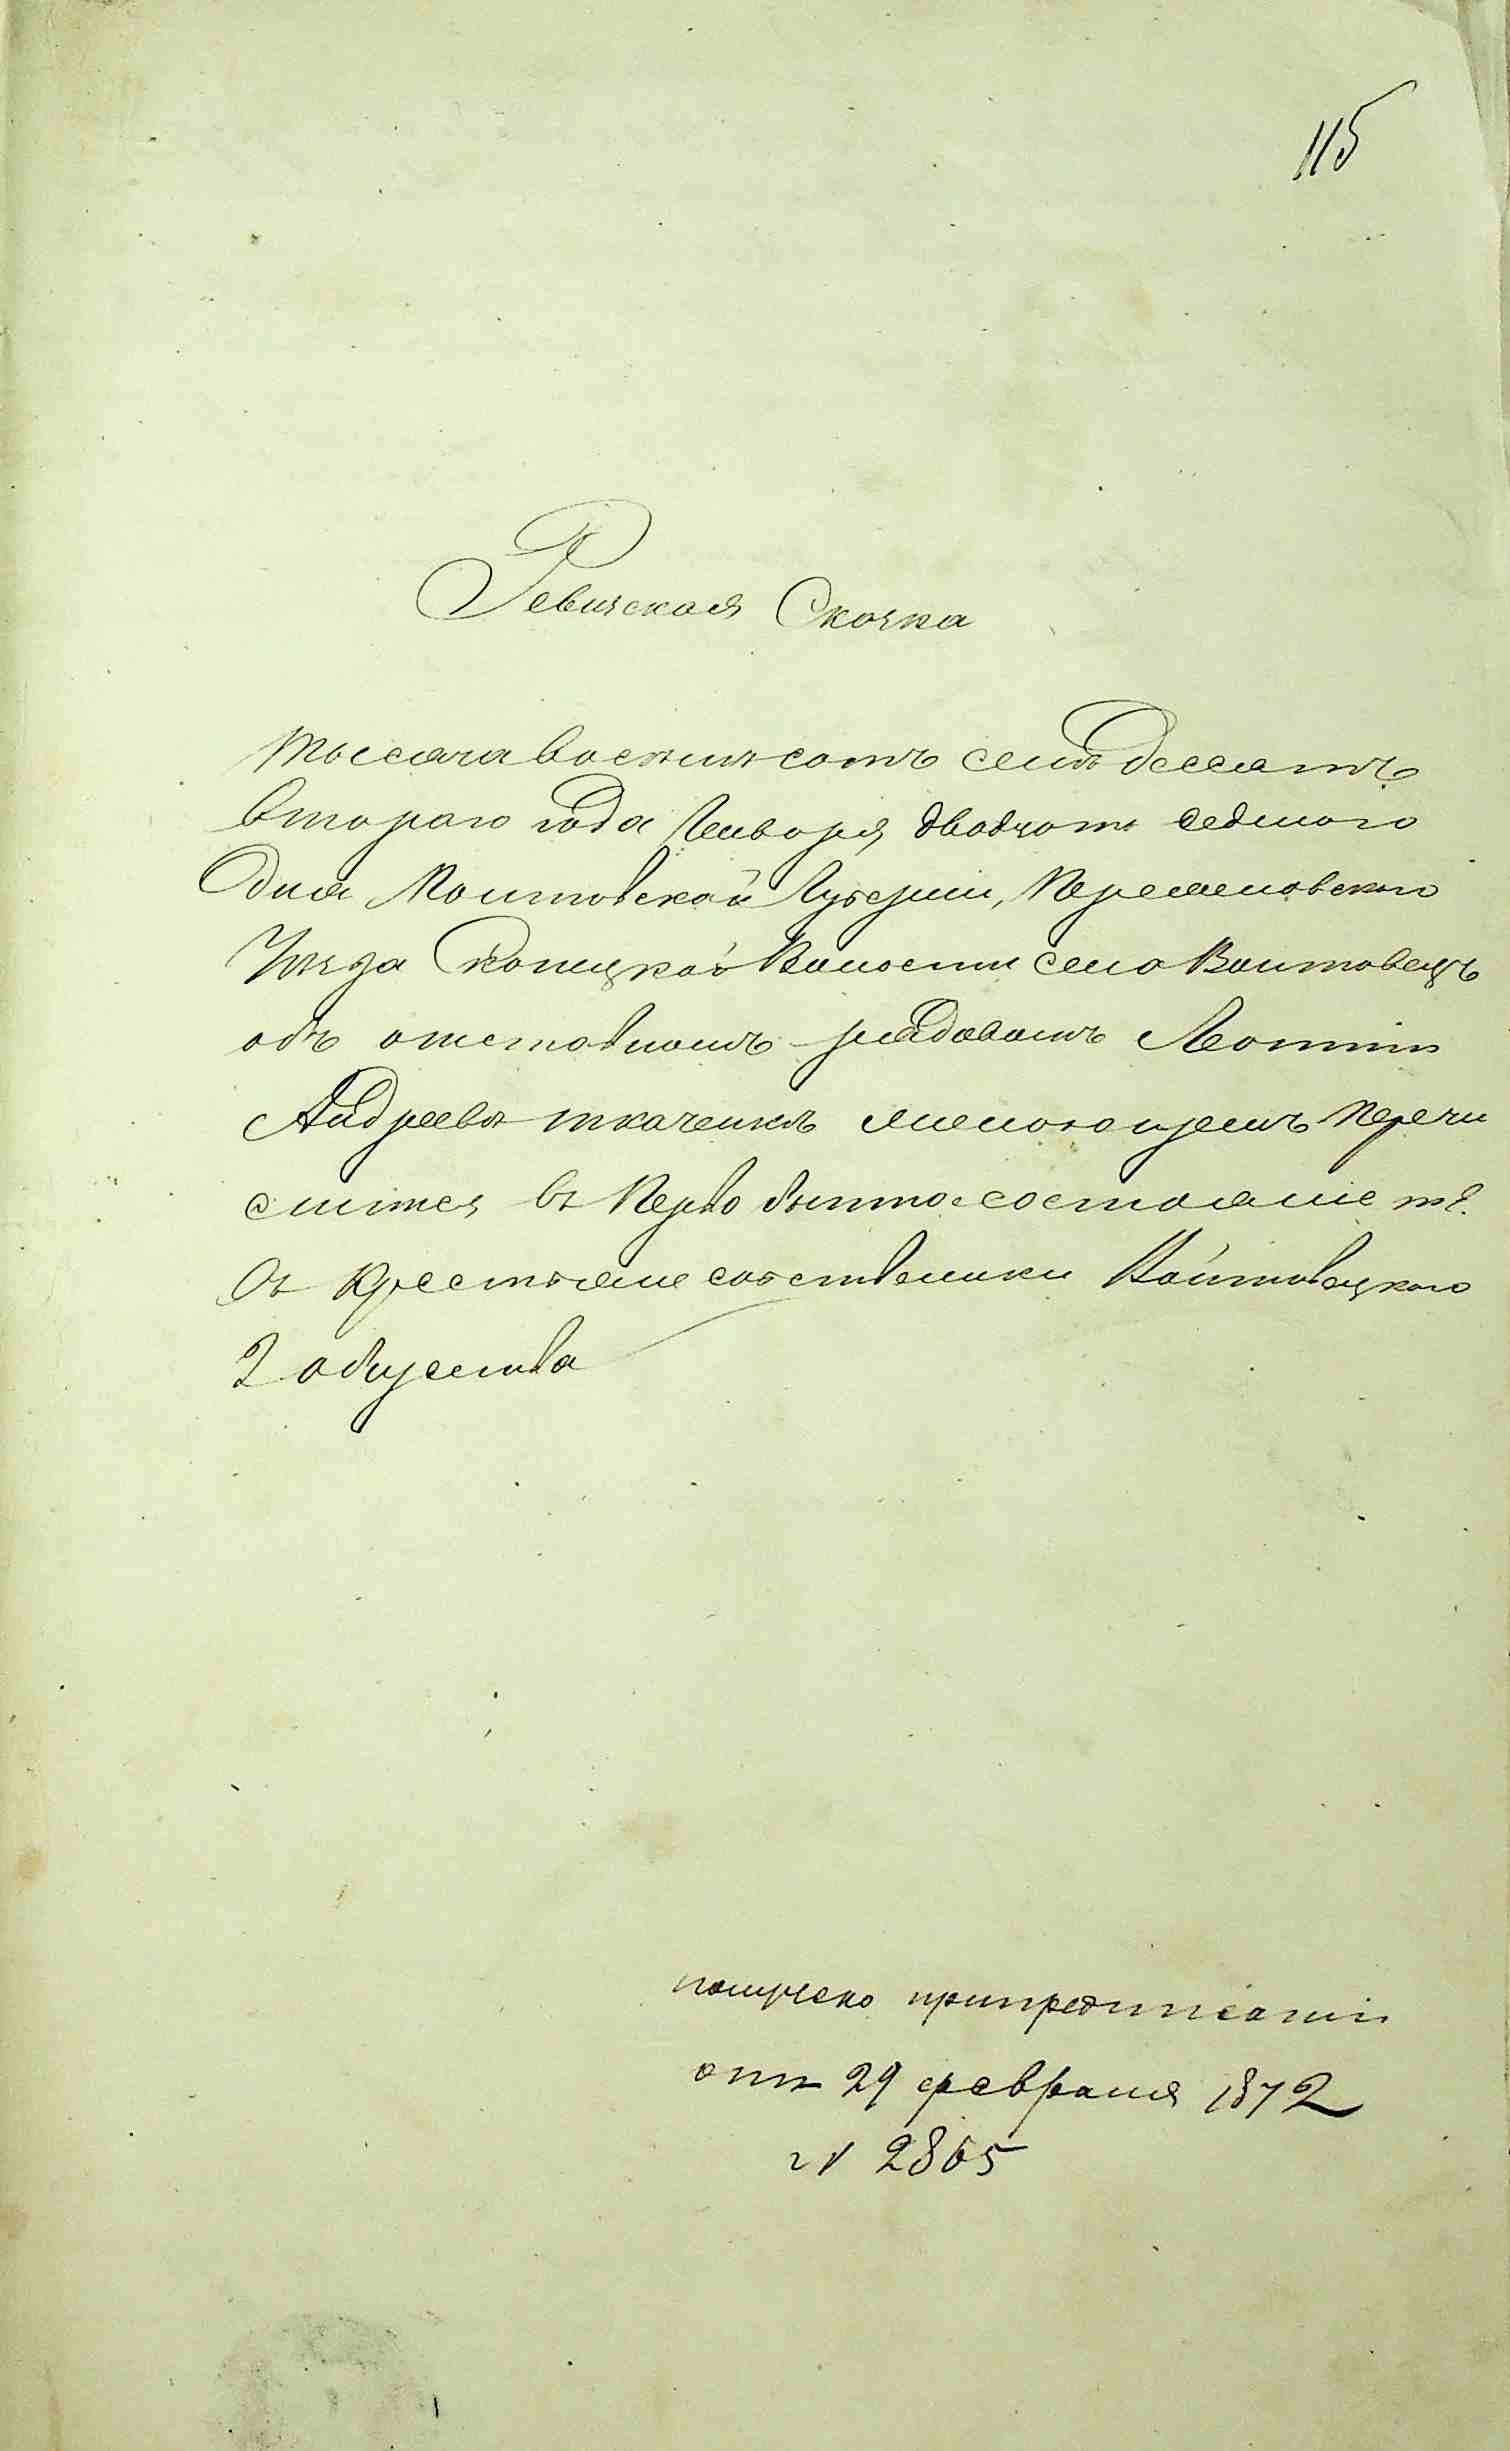 115
Ревизская Скозка
Тысяча восемьсотъ семьдесятъ
второго года Генворя двадцать седмого
дня Полтовской Губерніи, Переяславского
Уезда Скопецкой Волости села Воитовецъ
объ отставномъ рядовомъ Леонтіи
Андреевѣ ткаченкѣ желающемъ перечи
слится въ Перво бытное состояние т е.
въ Крестьяне собственики Войтовецкого
2 общества
получено припредписании
отъ 29 февраля 1872
N 2865